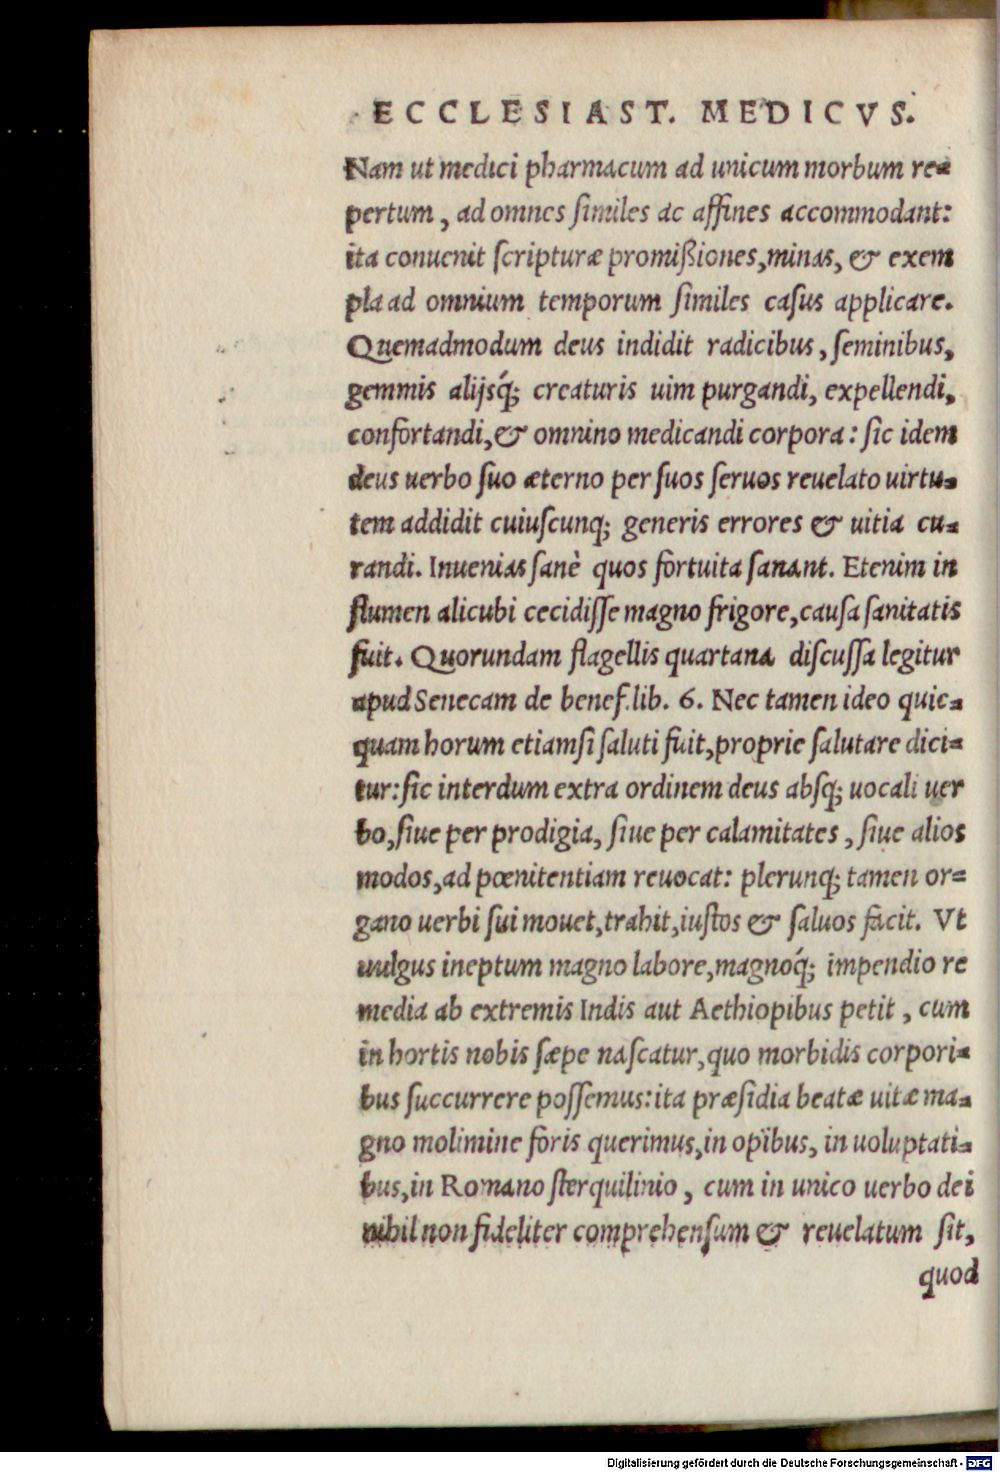 ECCLESIAST. MEDICVS.
Nam ut medici pharmacum ad unicum morbum re-
pertum, ad omnes ſimiles ac affines accommodant:
ita conuenit ſcripturæ promißiones, minas, & exem
pla ad omnium temporum ſimiles caſus applicare.
Quemadmodum deus indidit radicibus, ſeminibus,
gemmis alijsq́; creaturis uim purgandi, expellendi,
confortandi, & omnino medicandi corpora: ſic idem
deus uerbo ſuo æterno per ſuos ſeruos reuelato uirtu-
tem addidit cuiuſcunq; generis errores & uitia cu-
randi. Inuenias ſanè quos fortuita ſanant. Etenim in
flumen alicubi cecidiſſe magno frigore, cauſa ſanitatis
fuit. Quorundam flagellis quartana diſcuſſa legitur
apud Senecam de benef. lib. 6. Nec tamen ideo quic-
quam horum etiamſi ſaluti fuit, proprie ſalutare dici-
tur: ſic interdum extra ordinem deus abſq; uocali uer
bo, ſiue per prodigia, ſiue per calamitates, ſiue alios
modos, ad pœnitentiam reuocat: plerunq; tamen or-
gano uerbi ſui mouet, trahit, iuſtos & ſaluos facit. Vt
uulgus ineptum magno labore, magnoq́; impendio re
media ab extremis Indis aut Aethiopibus petit, cum
in hortis nobis ſæpe naſcatur, quo morbidis corpori-
bus ſuccurrere poſſemus: ita præſidia beatæ uitæ ma-
gno molimine foris querimus, in opibus, in uoluptati-
bus, in Romano ſterquilinio, cum in unico uerbo dei
nihil non fideliter comprehenſum & reuelatum ſit,
quod
Digitalisierung gefördert durch die Deutsche Forschungsgemeinschaft - DFG